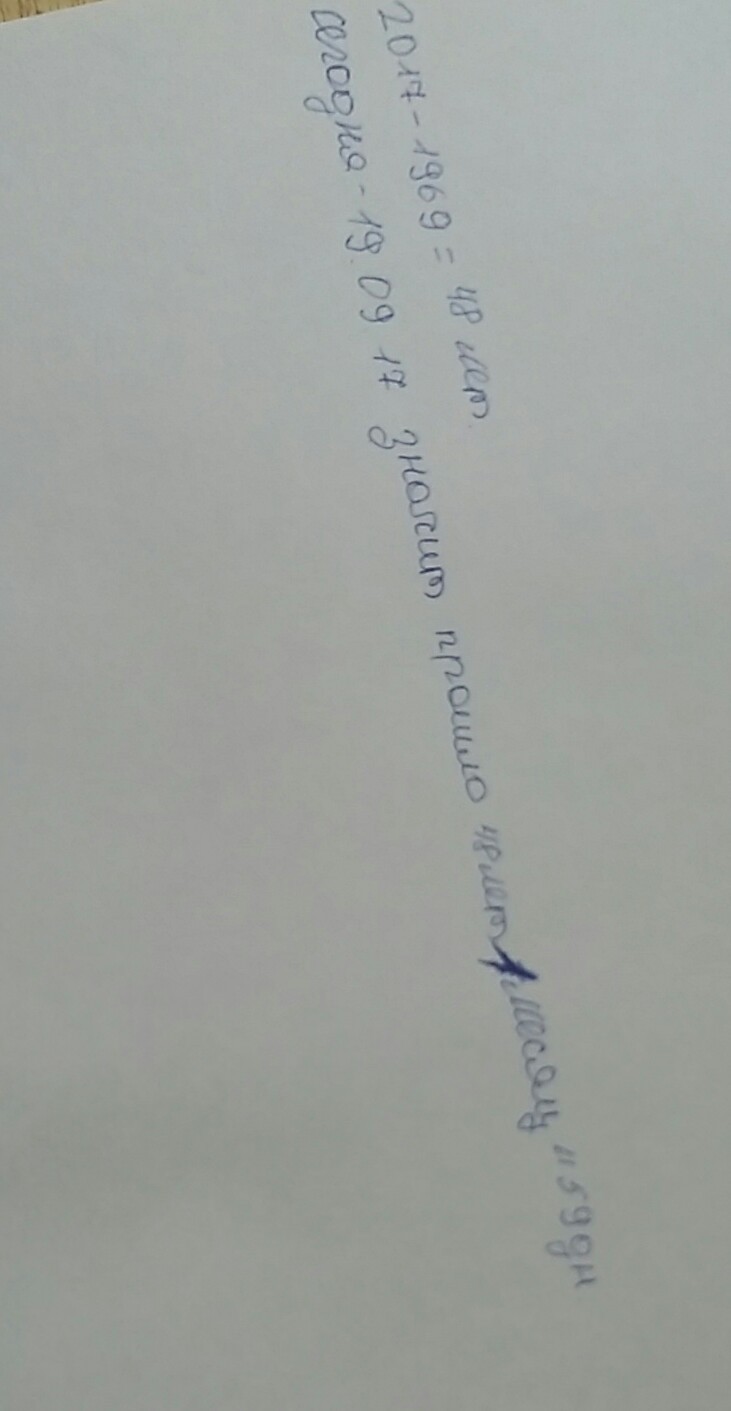 2017 - 1969 = 48 лет.
сегодня - 19.09 17 значит прошло 48 лет 1 месяц и 59 дн